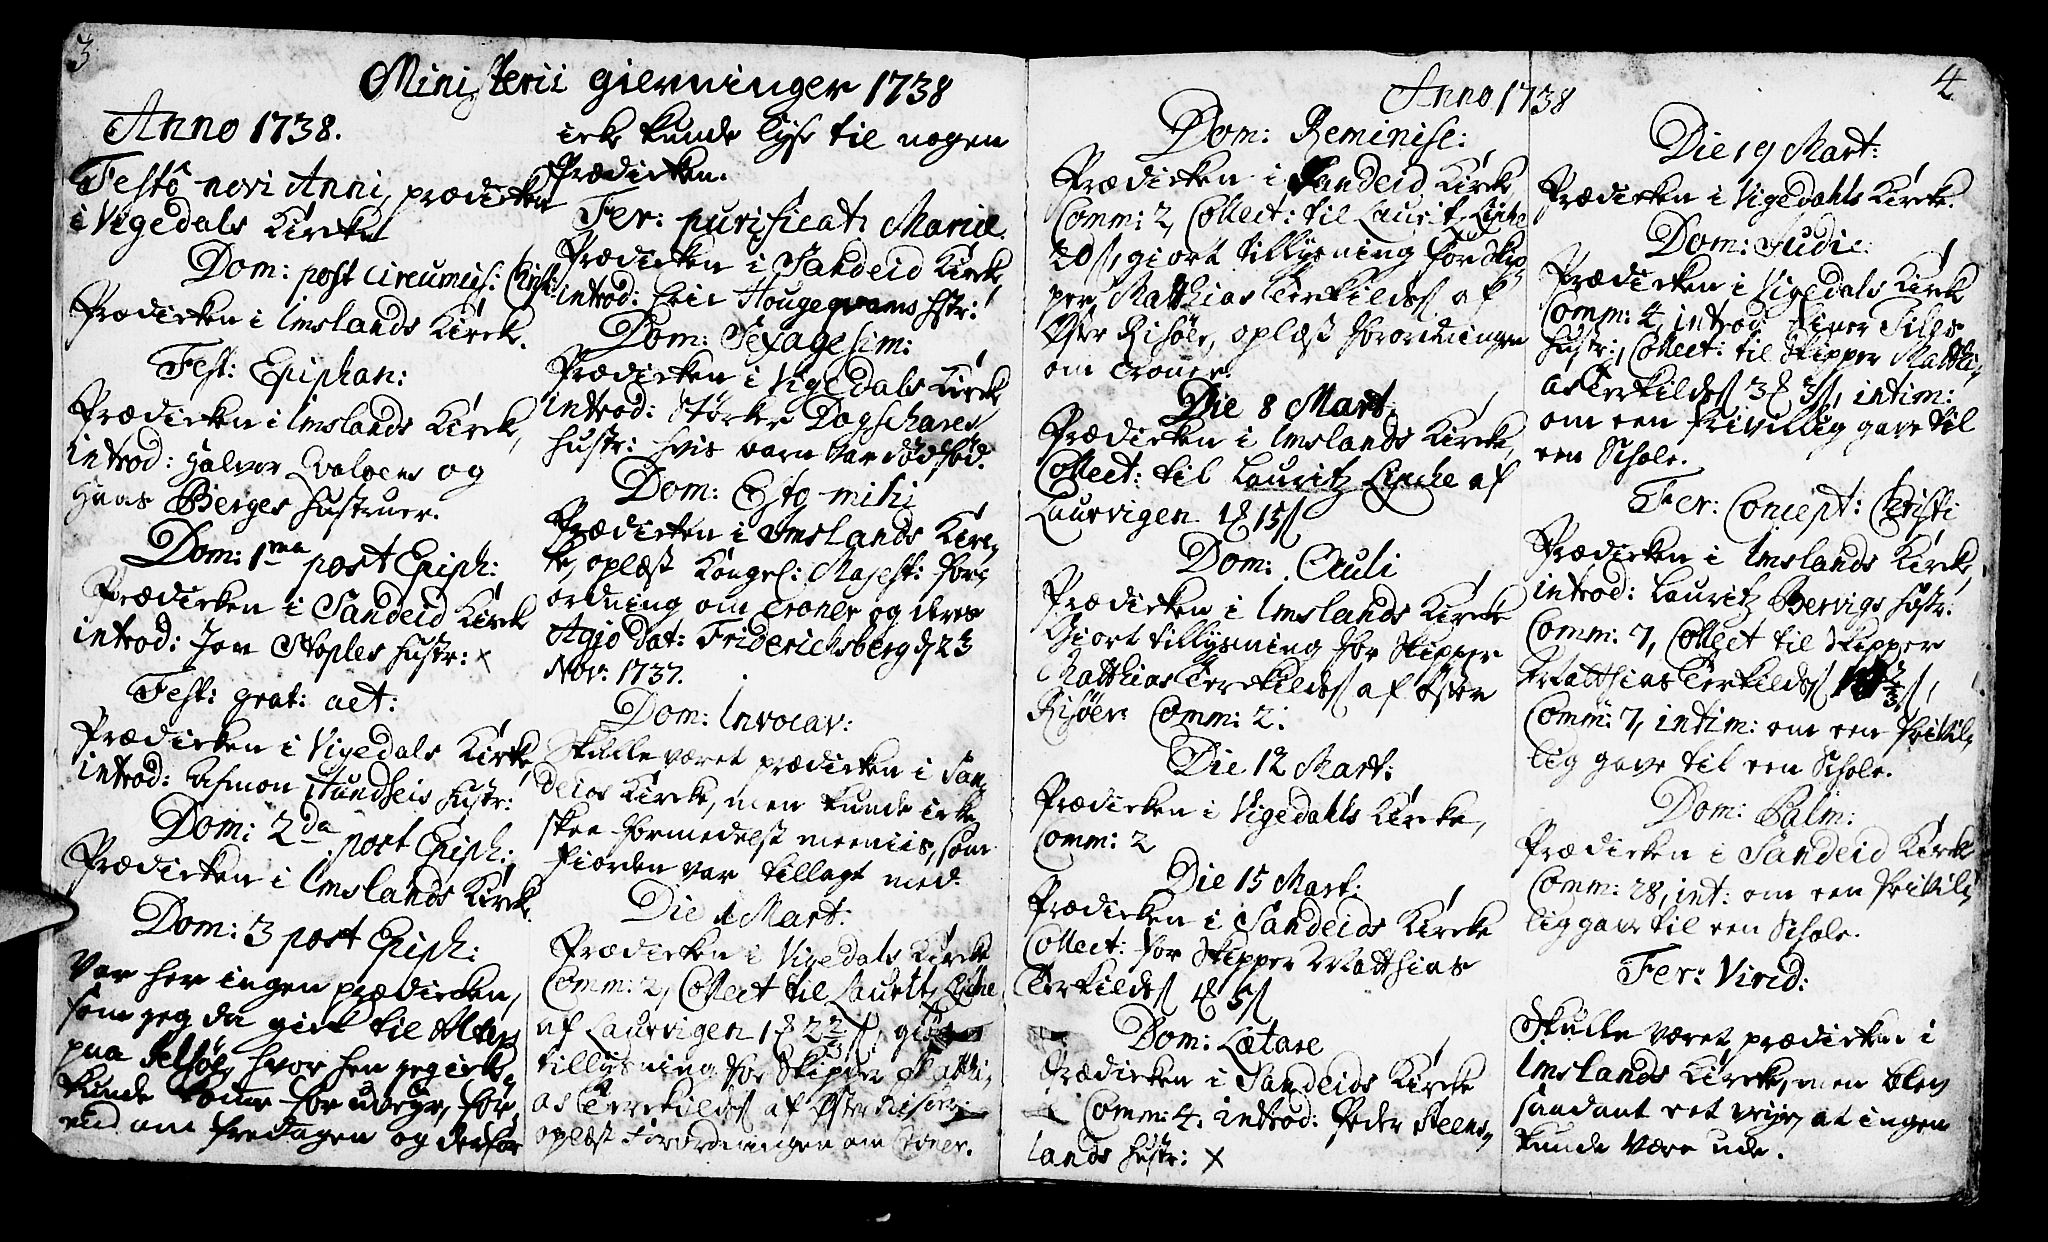 3
Ministerii gierninger 1738
Anno 1738.
Festô novi Anni, prædicken
i Vigedals Kircke
Dom: post circumcis: Christi
Prædicken i Imslands Kirck.
Fest: Epiphan:
Prædicken i Imslands Kirck,
introd: Halvor Qvaloens og
Haas Berges hustruer.
Dom: 1ma post Epiph:
Prædicken i Sandeid Kirck
introd: Jon Stoples hustr: x
Fest: grat: act:
Prædicken i Vigedals Kirke,
introd: Asmon Hundseis hustr:
Dom: 2da post Epiph:
Prædicken i Imslands Kirck.
Dom: 3 post Epiph:
Var her ingen prædicken,
som jeg da gick til Alters
paa Jelsøe, hvor hen jeg ick
kunde komme for uveyr, før,
end om fredagen og derfor
icke kunde lyse til nogen
Prædicken.
Fer: purificat: Mariæ.
Prædicken i Sandeid Kirck,
introd: Eric Hougegvams hstr:
Dom: Sexagesim:
Prædicken i Vigedals Kirck
introd: Størker Dagschares
hustr: hvis barn var død fød.
Dom: Esto mihi
Prædicken i Imslands Kirc,
ke, oplæst Kongel: Majest: for,
ordning om Croner og deres
Agio dat: Friderichsberg d, 23
Nov: 1737.
Dom: Invocav:
Skulle været prædicken i San,
deids Kircke, men kunde icke
skee formedelst meeniis, som
fiorden var tillagt med.
Die 1 Mart:
Prædicken i Vigedals Kircke
Comm: 2, Collect til Lauritz Lyche
af Laurvigen 1 ₰ 2 2/3 ß,
tillysning for Skipper Matthi,
as Terckildsß af Øster Risøer,
oplæst Forordningen om Croner.
4
Anno 1738
Dom: Reminisc:
Prædicken i Sandeid Kirck,
Comm: 2, Collect: til Lauritz Lyche
20 ß, giort tillysning for Skip,
per Matthias Terkildsß af
Øster Risöer, oplæst forordningen
om Croner.
Die 8 Mart:
Prædicken i Imslands Kircke,
Collect: til Lauritz Lyche af
Laurvigen 1 ₰ 15 ß
Dom: Oculi
Prædicken i Imslands Kircke
Giort tillysning for Skipper
Matthias Terckildsß af Øster
Risöer Comm: 2.
Die 12 Mart:
Prædicken i Vigedahls Kircke,
Comm: 2
Die 15 Mart:
Prædicken i Sandeids Kircke
Collect: for Skipper Matthias
Terkildsß 1 ₰ 5 ß
Dom: Lætare
Prædicken i Sandeids Kircke
Comm: 4. introd: Peder Steens,
lands hustr: x
Die 19 Mart:
Prædicken i Vigedahls Kirck.
Dom: Judic:
Prædicken i Vigedals Kirck
Comm: 4, introd: Siver
hustr:, Collect: til Skipper Matthi,
as Terkildsß 3 ₰ 3 ß, intim:
om een frivillig gave til
een Schole.
Fer: Concept: Christi
Prædicken i Imslands Kirck,
introd: Lauritz Bervigs hustr:
Comm: 7, Collect til Skipper
Matthias Terkildsß
Comm: 7, intim: om een frivil,
lig gave til een Schole.
Dom: Palm:
Prædicken i Sandeid Kirck
Comm: 28, int: om een frivil,
lig gave til een Schole.
Fer: Virid:
Skulle været prædicken i
Imslands Kircke, men blev
saadant vejr, at ingen
kunde være ude.